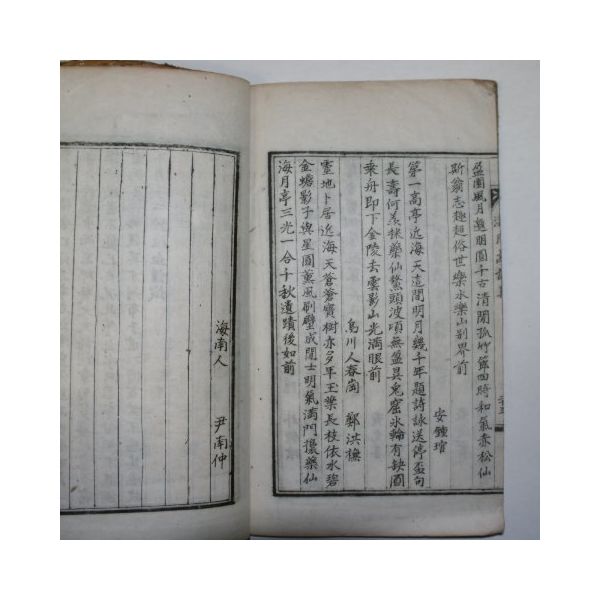 盈園風月逸朋圓千古清閒孤竹篇四時和氣赤松仙
斯翁志趣超俗世樂水樂山別界前
安鍾琯
第一高亭近海天遠開明月幾千年題詩詠送停盃句
長壽何羨採藥仙鰲頭波頃無盡具兔窟氷輪有缺圓
乘舟卽下金陵去雲影山光滿眼前
烏川人春崗 鄭洪櫄
靈地卜居近海天蒼蒼寶樹亦多年玉葉長枝依水碧
金蟾影子與星圓薰風刷壁成閒士明氣滿門攘藥仙
海月亭三光一合千秋遺蹟後如前
海南人 尹南仲